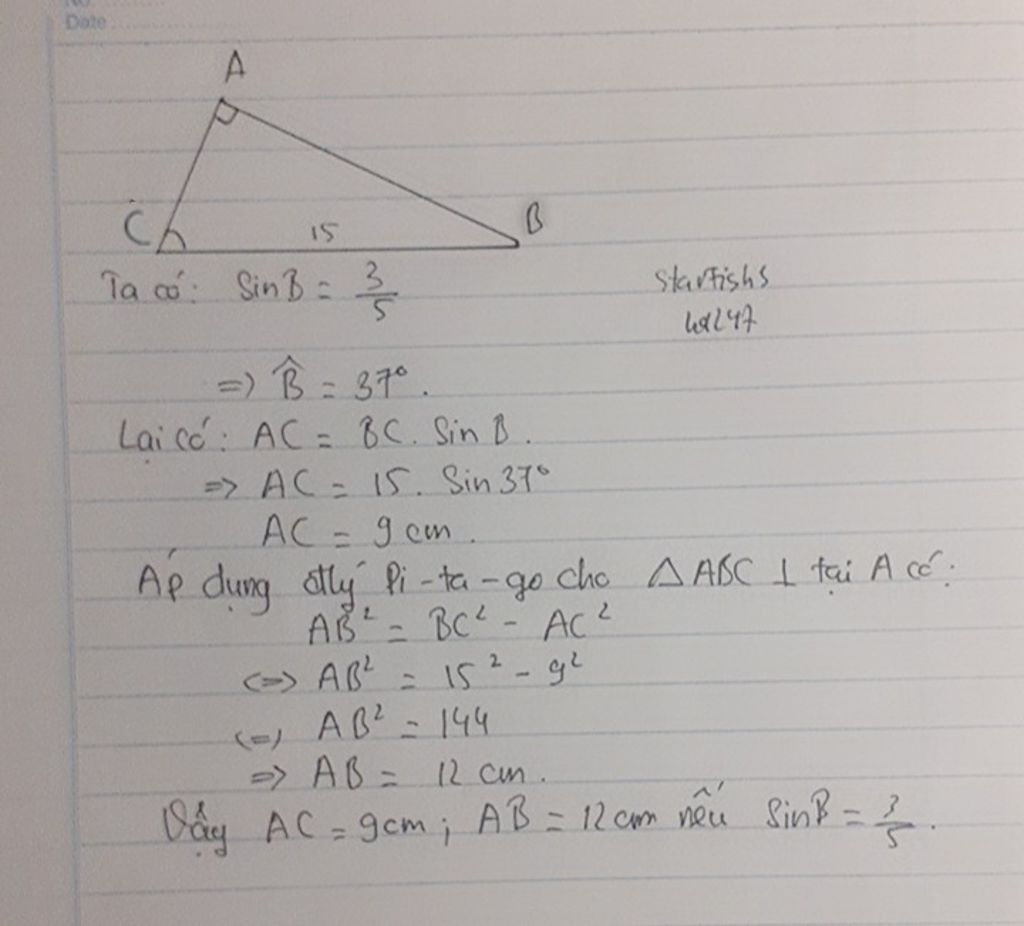 No
Date
A
C
15
B
Ta có: SinB = 3/5
starfishs
hd247
=> B̂ = 37°.
Lại có: AC = BC. Sin B.
=> AC = 15. Sin 37°
AC = 9 cm.
Áp dụng đlý Pi-ta-go cho △ABC ⊥ tại A có:
AB² = BC² - AC²
<=> AB² = 15² - 9²
<=> AB² = 144
=> AB = 12 cm.
Vậy AC = 9cm; AB = 12cm nếu SinB = 3/5.